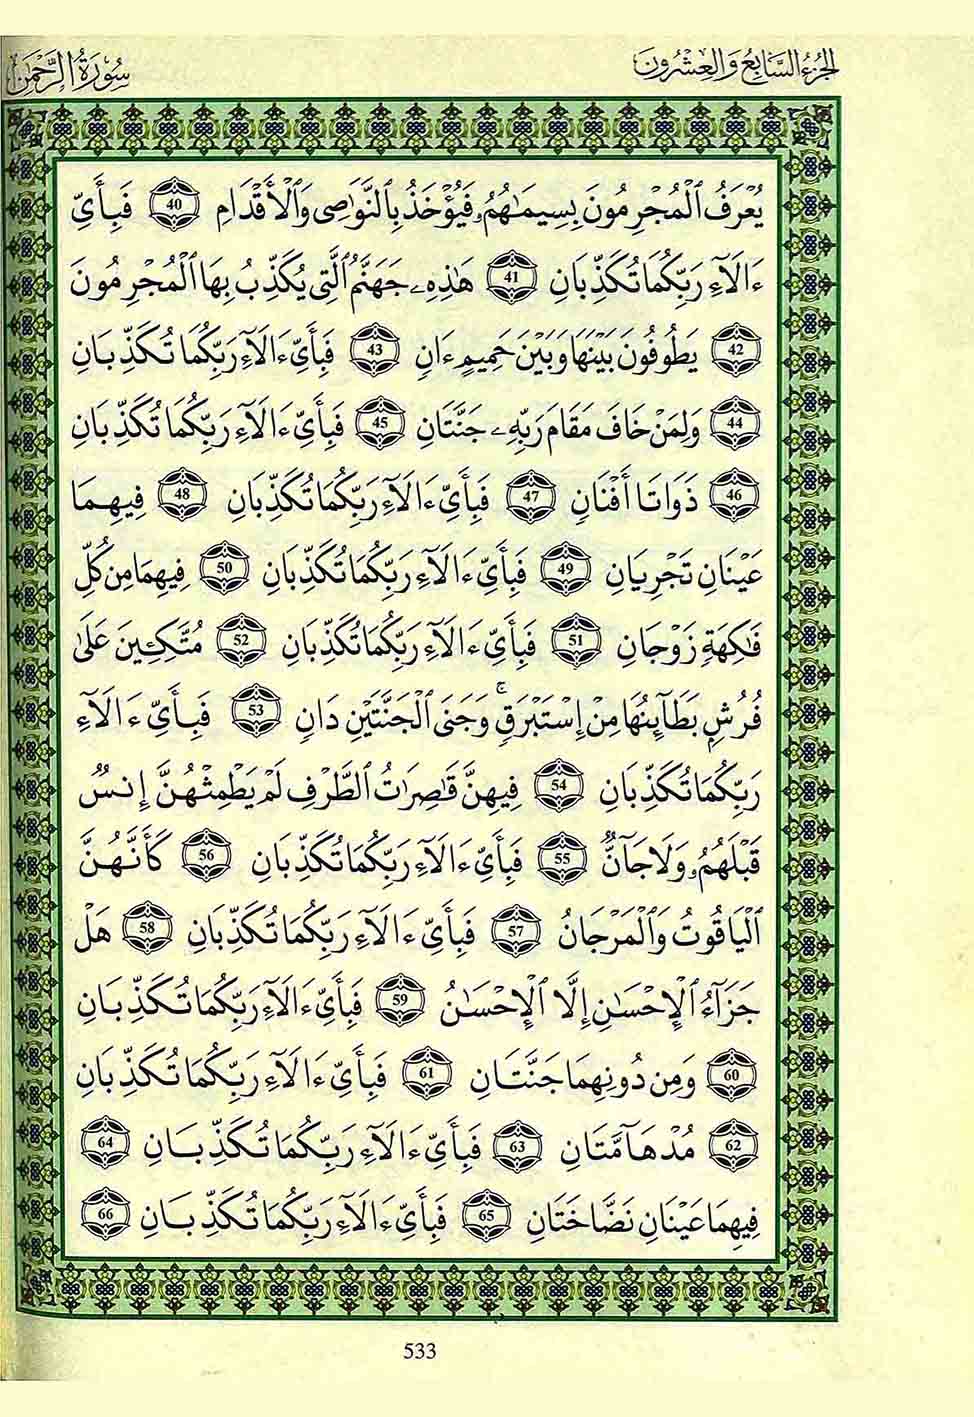 الجزء السابع والعشرون
سورة الرحمن
يُعْرَفُ ٱلْمُجْرِمُونَ بِسِيمَٰهُمْ فَيُؤْخَذُ بِٱلنَّوَٰصِى وَٱلْأَقْدَامِ 40 فَبِأَىِّ
ءَالَآءِ رَبِّكُمَا تُكَذِّبَانِ 41 هَٰذِهِۦ جَهَنَّمُ ٱلَّتِى يُكَذِّبُ بِهَا ٱلْمُجْرِمُونَ
42 يَطُوفُونَ بَيْنَهَا وَبَيْنَ حَمِيمٍ ءَانٍ 43 فَبِأَىِّ ءَالَآءِ رَبِّكُمَا تُكَذِّبَانِ
44 وَلِمَنْ خَافَ مَقَامَ رَبِّهِۦ جَنَّتَانِ 45 فَبِأَىِّ ءَالَآءِ رَبِّكُمَا تُكَذِّبَانِ
46 ذَوَاتَا أَفْنَانٍ 47 فَبِأَىِّ ءَالَآءِ رَبِّكُمَا تُكَذِّبَانِ 48 فِيهِمَا
عَيْنَانِ تَجْرِيَانِ 49 فَبِأَىِّ ءَالَآءِ رَبِّكُمَا تُكَذِّبَانِ 50 فِيهِمَا مِن كُلِّ
فَٰكِهَةٍ زَوْجَانِ 51 فَبِأَىِّ ءَالَآءِ رَبِّكُمَا تُكَذِّبَانِ 52 مُتَّكِـِٔينَ عَلَىٰ
فُرُشٍۭ بَطَآئِنُهَا مِنْ إِسْتَبْرَقٍ ۚ وَجَنَى ٱلْجَنَّتَيْنِ دَانٍ 53 فَبِأَىِّ ءَالَآءِ
رَبِّكُمَا تُكَذِّبَانِ 54 فِيهِنَّ قَٰصِرَٰتُ ٱلطَّرْفِ لَمْ يَطْمِثْهُنَّ إِنسٌ
قَبْلَهُمُۥ وَلَا جَآنٌّ 55 فَبِأَىِّ ءَالَآءِ رَبِّكُمَا تُكَذِّبَانِ 56 كَأَنَّهُنَّ
ٱلْيَاقُوتُ وَٱلْمَرْجَانُ 57 فَبِأَىِّ ءَالَآءِ رَبِّكُمَا تُكَذِّبَانِ 58 هَلْ
جَزَآءُ ٱلْإِحْسَٰنِ إِلَّا ٱلْإِحْسَٰنُ 59 فَبِأَىِّ ءَالَآءِ رَبِّكُمَا تُكَذِّبَانِ
60 وَمِن دُونِهِمَا جَنَّتَانِ 61 فَبِأَىِّ ءَالَآءِ رَبِّكُمَا تُكَذِّبَانِ
62 مُدْهَآمَّتَانِ 63 فَبِأَىِّ ءَالَآءِ رَبِّكُمَا تُكَذِّبَانِ 64
فِيهِمَا عَيْنَانِ نَضَّاخَتَانِ 65 فَبِأَىِّ ءَالَآءِ رَبِّكُمَا تُكَذِّبَانِ 66
533